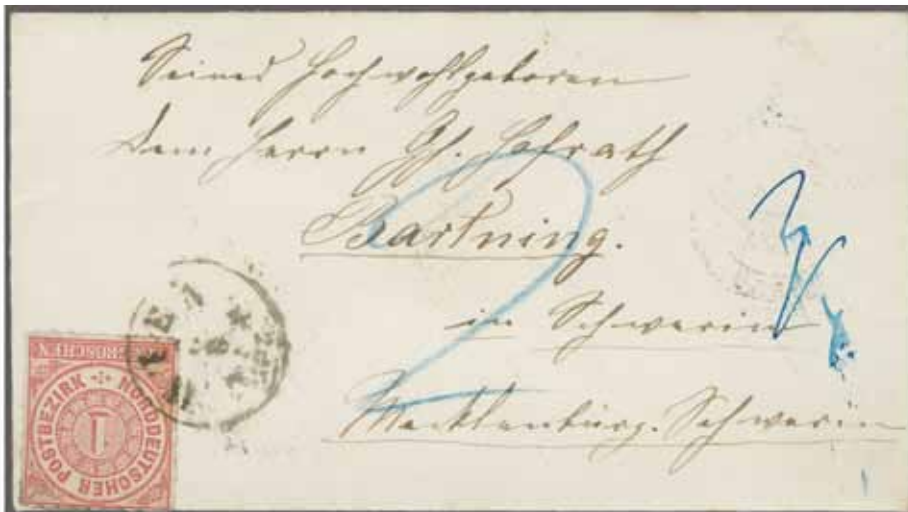 Seiner Hochwohlgeboren
Dem Herrn Gh. Hofrath
Bartning.
in Schwerin
Mecklenburg-Schwerin
2
GROSCHEN
NORDDEUTSCHER POSTBEZIRK
1